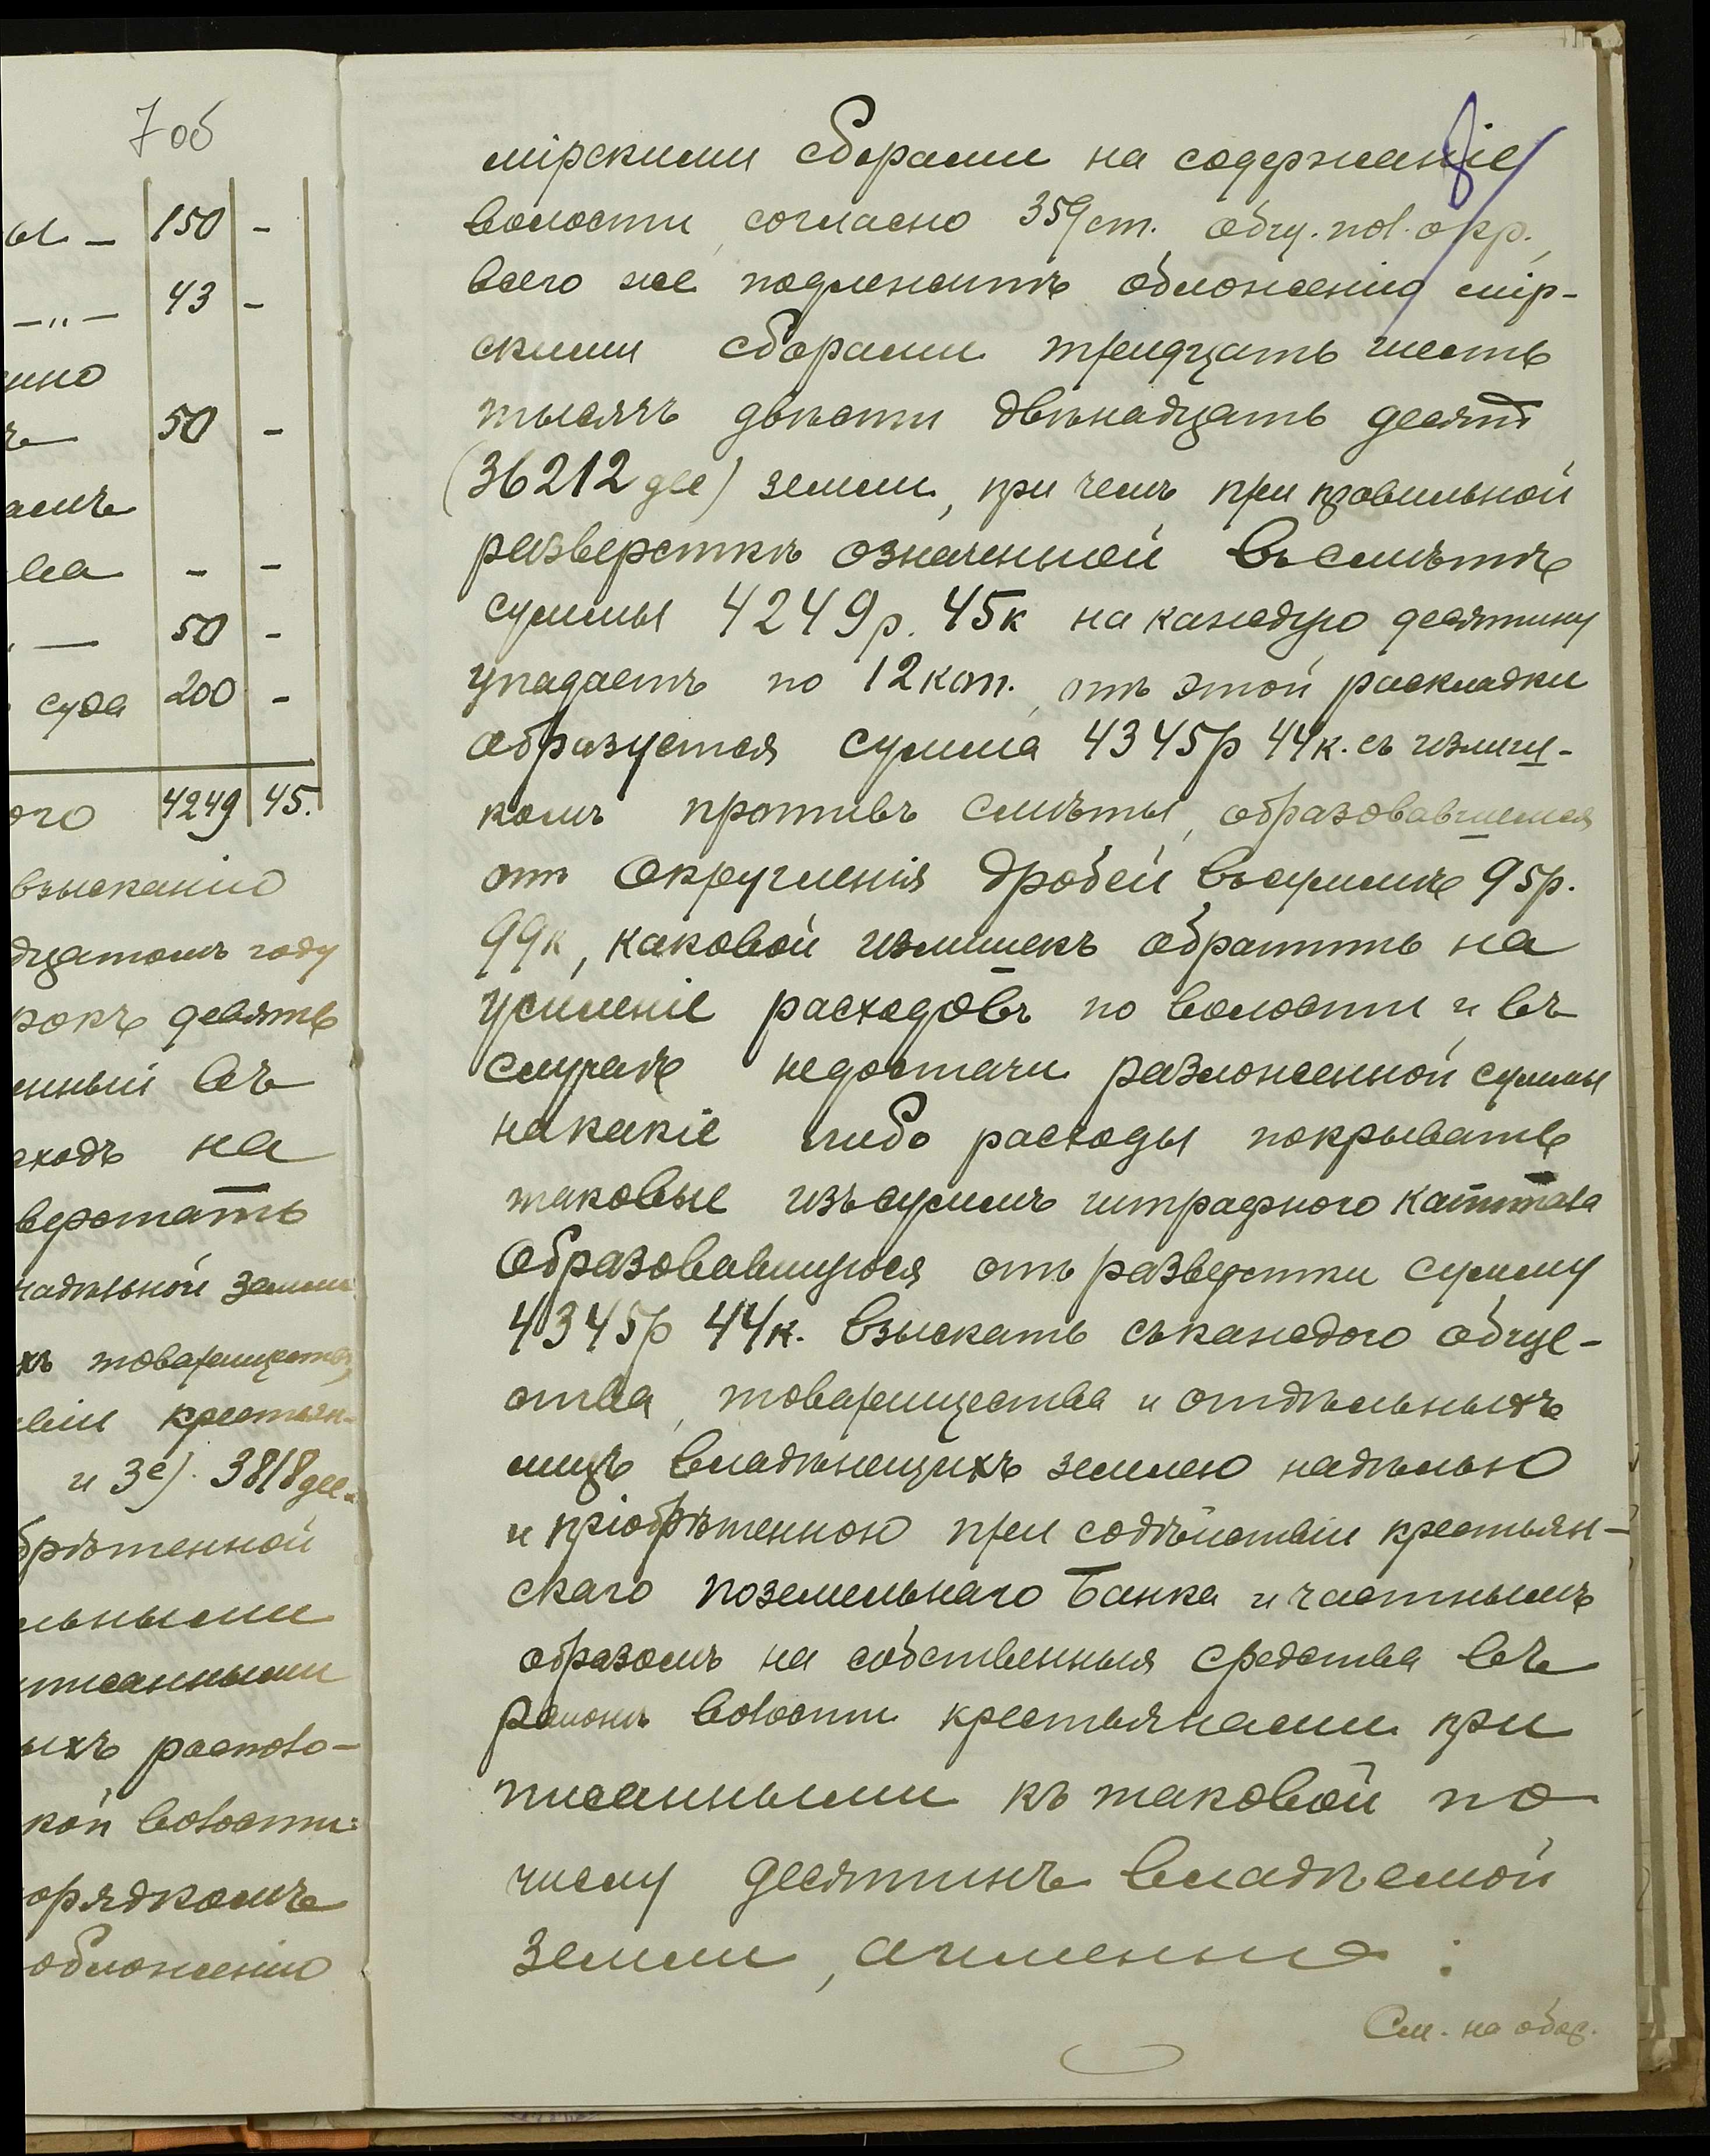 7 об
ы — 150 -
— „ — 43 -
нно
50 -
амъ
ва - -
— 50 -
суда 200 -
ого 4249 45.
взысканію
дцатомъ году
рокъ девять
нный въ
сходъ на
верстать
надѣльной земли
хъ товариществъ,
віи крестьян-
и 3е). 3818 дес.
брѣтенной
льными
писанными
ыхъ располо-
кой волости
орядкомъ
обложенію
8
мірскими сборами на содержаніе
волости, согласно 359 ст. общ. пол. о кр.,
всего же подлежитъ обложенію мір-
скими сборами тридцать шесть
тысячъ двѣсти двѣнадцать десят
(36212 дес) земли, при чемъ при правильной
разверсткѣ означенной въ смѣтѣ
суммы 4249 р. 45 к на каждую десятину
упадаетъ по 12 коп., отъ этой раскладки
образуется сумма 4345 р 44 к. съ излиш-
комъ противъ смѣты, образовавшемся
отъ округленія дробей въ суммѣ 95 р.
99 к, каковой излишекъ обратить на
усиленіе расходовъ по волости и въ
случаѣ недостачи разложенной суммы
на какіе либо расходы покрывать
таковые изъ суммъ штрафного капитала
Образовавшуюся отъ разверстки сумму
4345 р 44 к. взыскать съ каждого обще-
ства, товарищества и отдѣльныхъ
лицъ владѣющихъ землею надѣлью
и пріобрѣтенною при содѣйствіи крестьян-
скаго поземельнаго Банка и частнымъ
образомъ на собственныя средства въ
раіонѣ волости крестьянами при
писанными къ таковой по
числу десятинъ владѣемой
земли, а именно:
См. на обор.